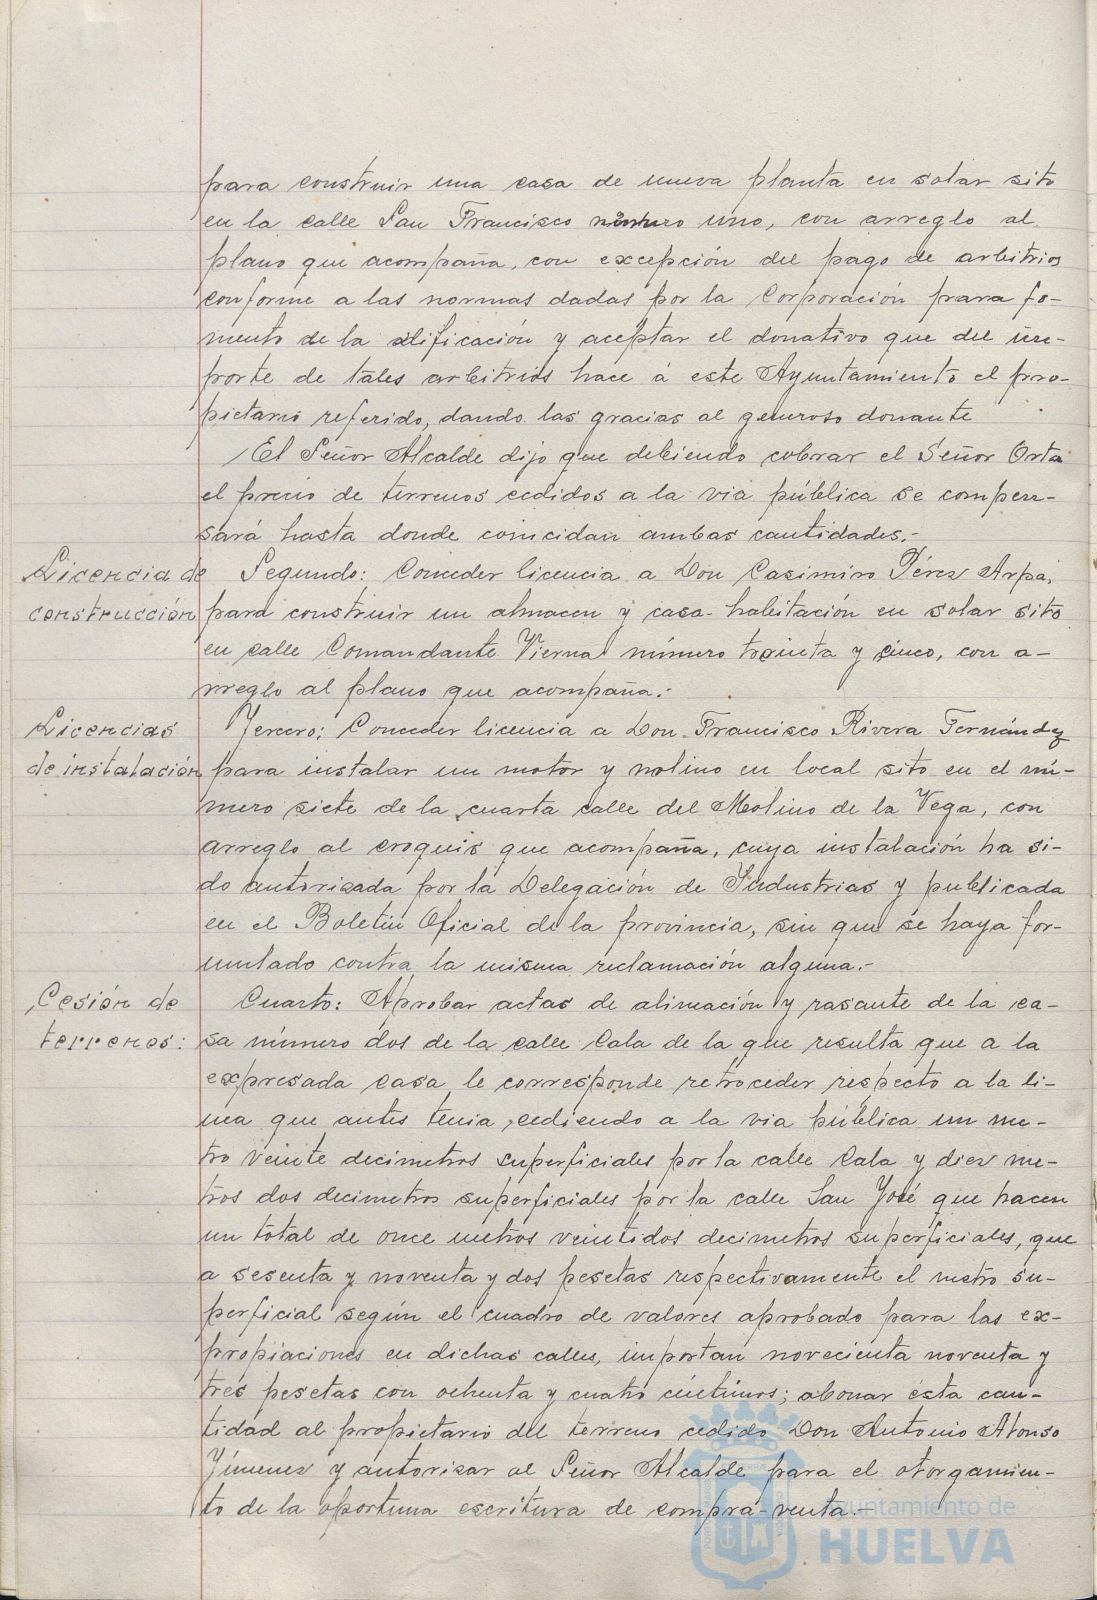 para construir una casa de nueva planta en solar sito
en la calle San Francisco número uno, con arreglo al
plano que acompaña, con excepción del pago de arbitrios
conforme a las normas dadas por la Corporación para fo-
mento de la edificación y aceptar el donativo que del im-
porte de tales arbitrios hace á este Ayuntamiento el pro-
pietario referido, dando las gracias al generoso donante
El Señor Alcalde dijo que debiendo cobrar el Señor Orta
el precio de terrenos cedidos a la via pública se compen-
sará hasta donde coincidan ambas cantidades.-
Licencia de
construcción
Segundo: Conceder licencia a Don Casimiro Pérez Arpa,
para construir un almacen y casa-habitación en solar sito
en calle Comandante Vierna número treinta y cinco, con a-
rreglo al plano que acompaña.-
Licencias
de instalación
Tercero: Conceder licencia a Don Francisco Rivera Fernández
para instalar un motor y molino en local sito en el nú-
mero siete de la cuarta calle del Molino de la Vega, con
arreglo al croquis que acompaña, cuya instalación ha si-
do autorizada por la Delegación de Industrias y publicada
en el Boletín Oficial de la provincia, sin que se haya for-
mulado contra la misma reclamación alguna.-
Cesión de
terrenos:
Cuarto: Aprobar actas de alineación y rasante de la ca-
sa número dos de la calle Cala de la que resulta que a la
expresada casa le corresponde retroceder respecto a la li-
nea que antes tenia, cediendo a la via pública un me-
tro veinte decimetros superficiales por la calle Cala y diez me-
tros dos decimetros superficiales por la calle San José que hacen
un total de once metros veintidos decimetros superficiales, que
a sesenta y noventa y dos pesetas respectivamente el metro su-
perficial según el cuadro de valores aprobado para las ex-
propiaciones en dichas calles, importan novecienta noventa y
tres pesetas con ochenta y cuatro céntimos; abonar esta can-
tidad al propietario del terreno cedido Don Antonio Afonso
Jimenez y autorizar al Señor Alcalde para el otorgamien-
to de la oportuna escritura de compra-venta.-
Ayuntamiento de
HUELVA